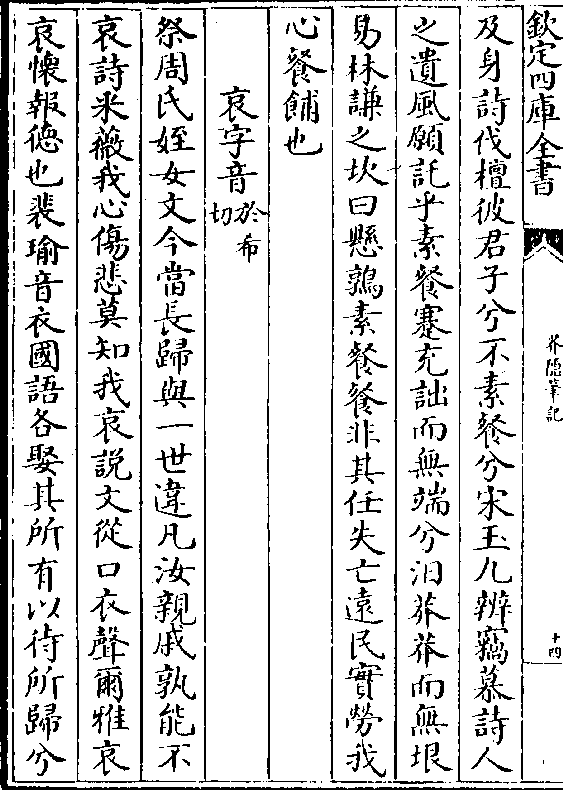 欽定四庫全書
芥隱筆記
十四
及身詩伐檀彼君子兮不素餐兮宋玉九辨竊慕詩人
之遺風願託乎素餐蹇充詘而無端兮汨莽莽而無垠
易林謙之坎曰懸鶉素餐餐非其任失亡遠民實勞我
心餐餔也
哀字音於希切
祭周氏姪女文今當長歸與一世違凡汝親戚孰能不
哀詩采薇我心傷悲莫知我哀説文從口衣聲爾雅哀
哀懷報德也裴瑜音衣國語各娶其所有以待所歸兮